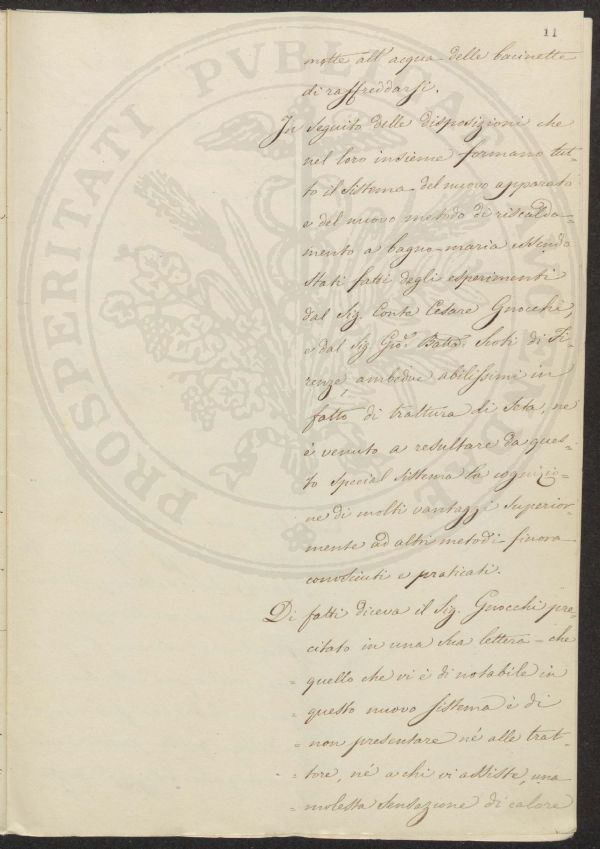 11
mette all'acqua delle bacinette
di raffreddarsi.
In seguito delle disposizioni che
nel loro insieme formano tut-
to il sistema del nuovo apparato
e del nuovo metodo di riscalda-
mento a bagno-maria essendo
stati fatti degli esperimenti
dal Sig. Conte Cesare Gnocchi,
e dal Sig. Gio. Batta. Scoti di Fi-
renze, ambedue abilissimi in
fatto di trattura di seta, ne
è venuto a resultare da ques-
to special sistema la cognizio-
ne di molti vantaggi superior-
mente ad altri metodi finora
conosciuti e praticati.
Di fatti diceva il Sig. Gnocchi pre-
citato in una sua lettera - che
= quello che vi è di notabile in
= questo nuovo sistema è di
= non presentare né alle trat-
= tore, né a chi vi assiste, una
= molesta sensazione di calore
PROSPERITATI PVBLICAE